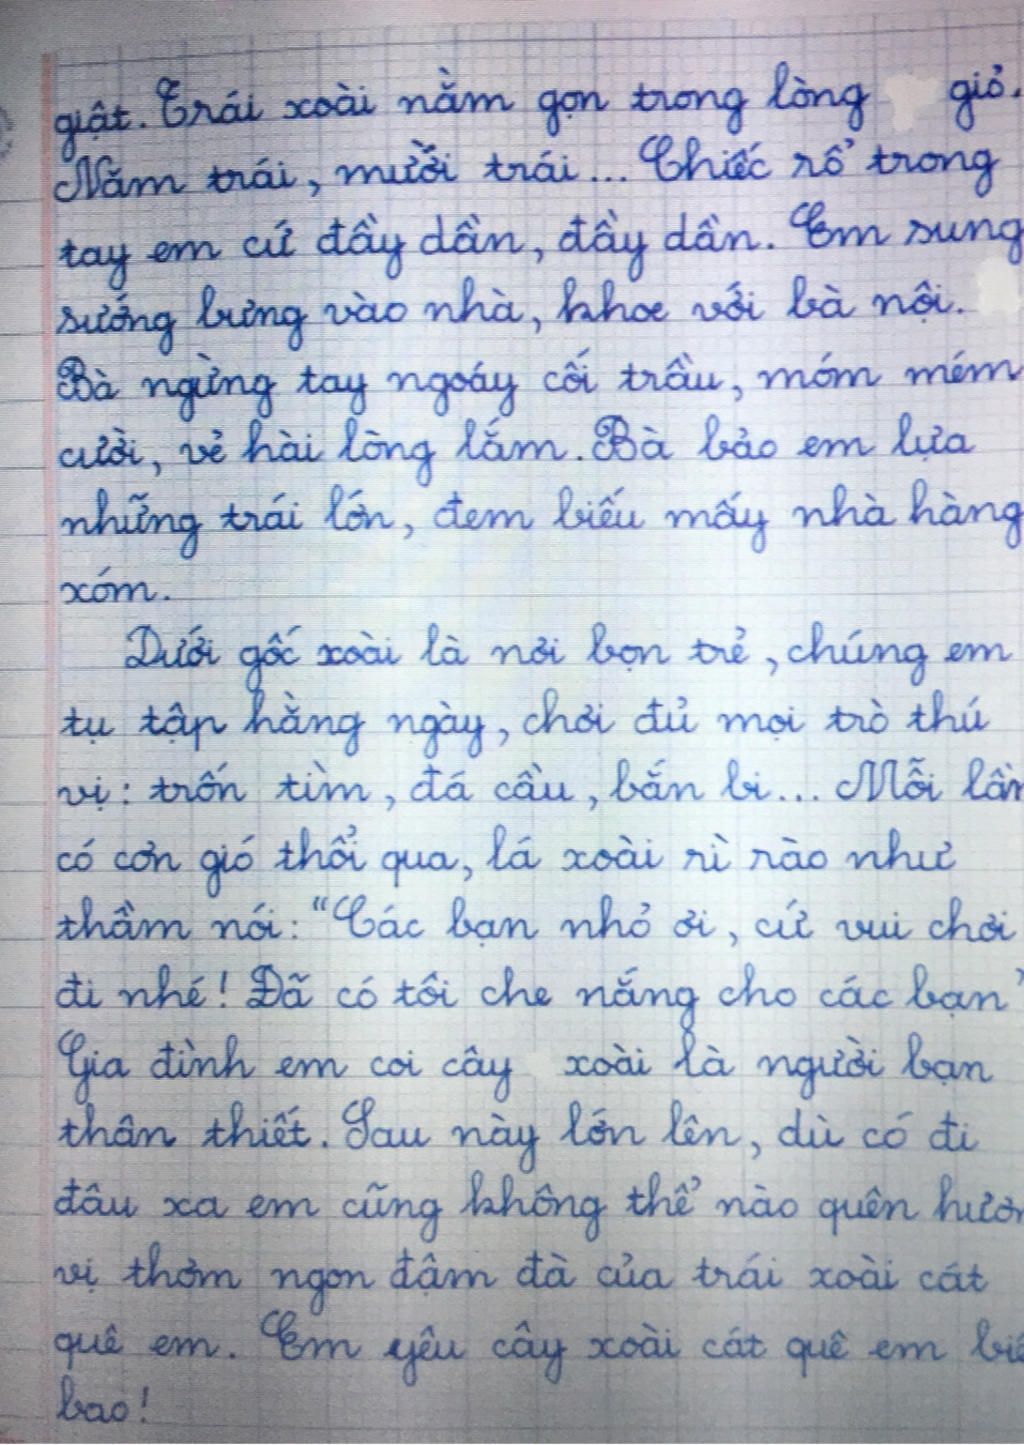 giật. Trái xoài nằm gọn trong lòng giỏ.
Năm trái, mười trái... Chiếc rổ trong
tay em cứ đầy dần, đầy dần. Em sung
sướng bưng vào nhà, khoe với bà nội.
Bà ngừng tay ngoáy cối trầu, móm mém
cười, vẻ hài lòng lắm. Bà bảo em lựa
những trái lớn, đem biếu mấy nhà hàng
xóm.
Dưới gốc xoài là nơi bọn trẻ, chúng em
tụ tập hằng ngày, chơi đủ mọi trò thú
vị: trốn tìm, đá cầu, bắn bi... Mỗi lần
có cơn gió thổi qua, lá xoài rì rào như
thầm nói: "Các bạn nhỏ ơi, cứ vui chơi
đi nhé! Đã có tôi che nắng cho các bạn"
Gia đình em coi cây xoài là người bạn
thân thiết. Sau này lớn lên, dù có đi
đâu xa em cũng không thể nào quên hươn
vị thơm ngon đậm đà của trái xoài cát
quê em. Em yêu cây xoài cát quê em biế
bao!